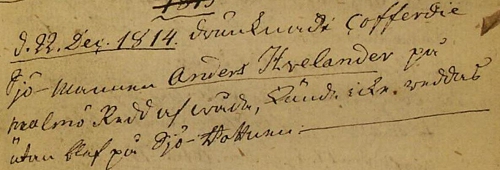 d. 22. Dec. 1814. drunknade Cofferdie
Sjö-mannen Anders Hvelander på
malmö Redd af våda, kunde icke reddas
utan blef på Sjö-Bottnen.